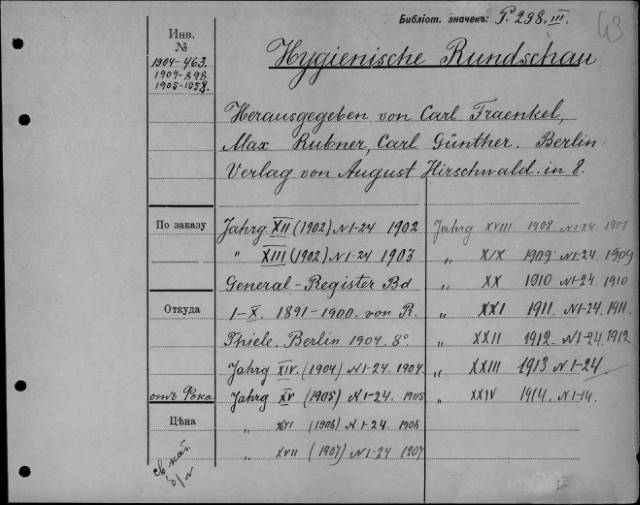 Библіот. значекъ: P. 298. III.
43
Инв.
№
1904-463.
1904-898.
1905-1058.
Hygienische Rundschau
Herausgegeben von Carl Fraenkel,
Max Rubner, Carl Günther. Berlin
Verlag von August Hirschwald. in 8.
По заказу
Jahrg. XII (1902) N 1-24 1902
" XIII (1902) N 1-24 1903
General-Register Bd
Откуда
I-X. 1891-1900. von R.
Thiele. Berlin 1904. 8°
Jahrg XIV. (1904) N 1-24. 1904.
отъ Фока
Jahrg XV (1905) N 1-24. 1905
Цѣна
" XVI (1906) N 1-24. 1906
" XVII (1907) N 1-24 1907
Jahrg XVIII 1908 N 1-24 1908
" XIX 1909 N 1-24. 1909
" XX 1910 N 1-24. 1910
" XXI 1911. N 1-24. 1911.
" XXII 1912. N 1-24. 1912
" XXIII 1913 N 1-24.
" XXIV 1914. N 1-14.